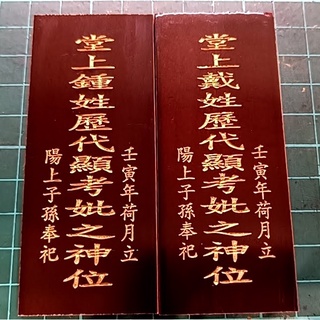 堂上戴姓歷代顯考妣之神位
壬寅年荷月立
陽上子孫奉祀
堂上鍾姓歷代顯考妣之神位
壬寅年荷月立
陽上子孫奉祀